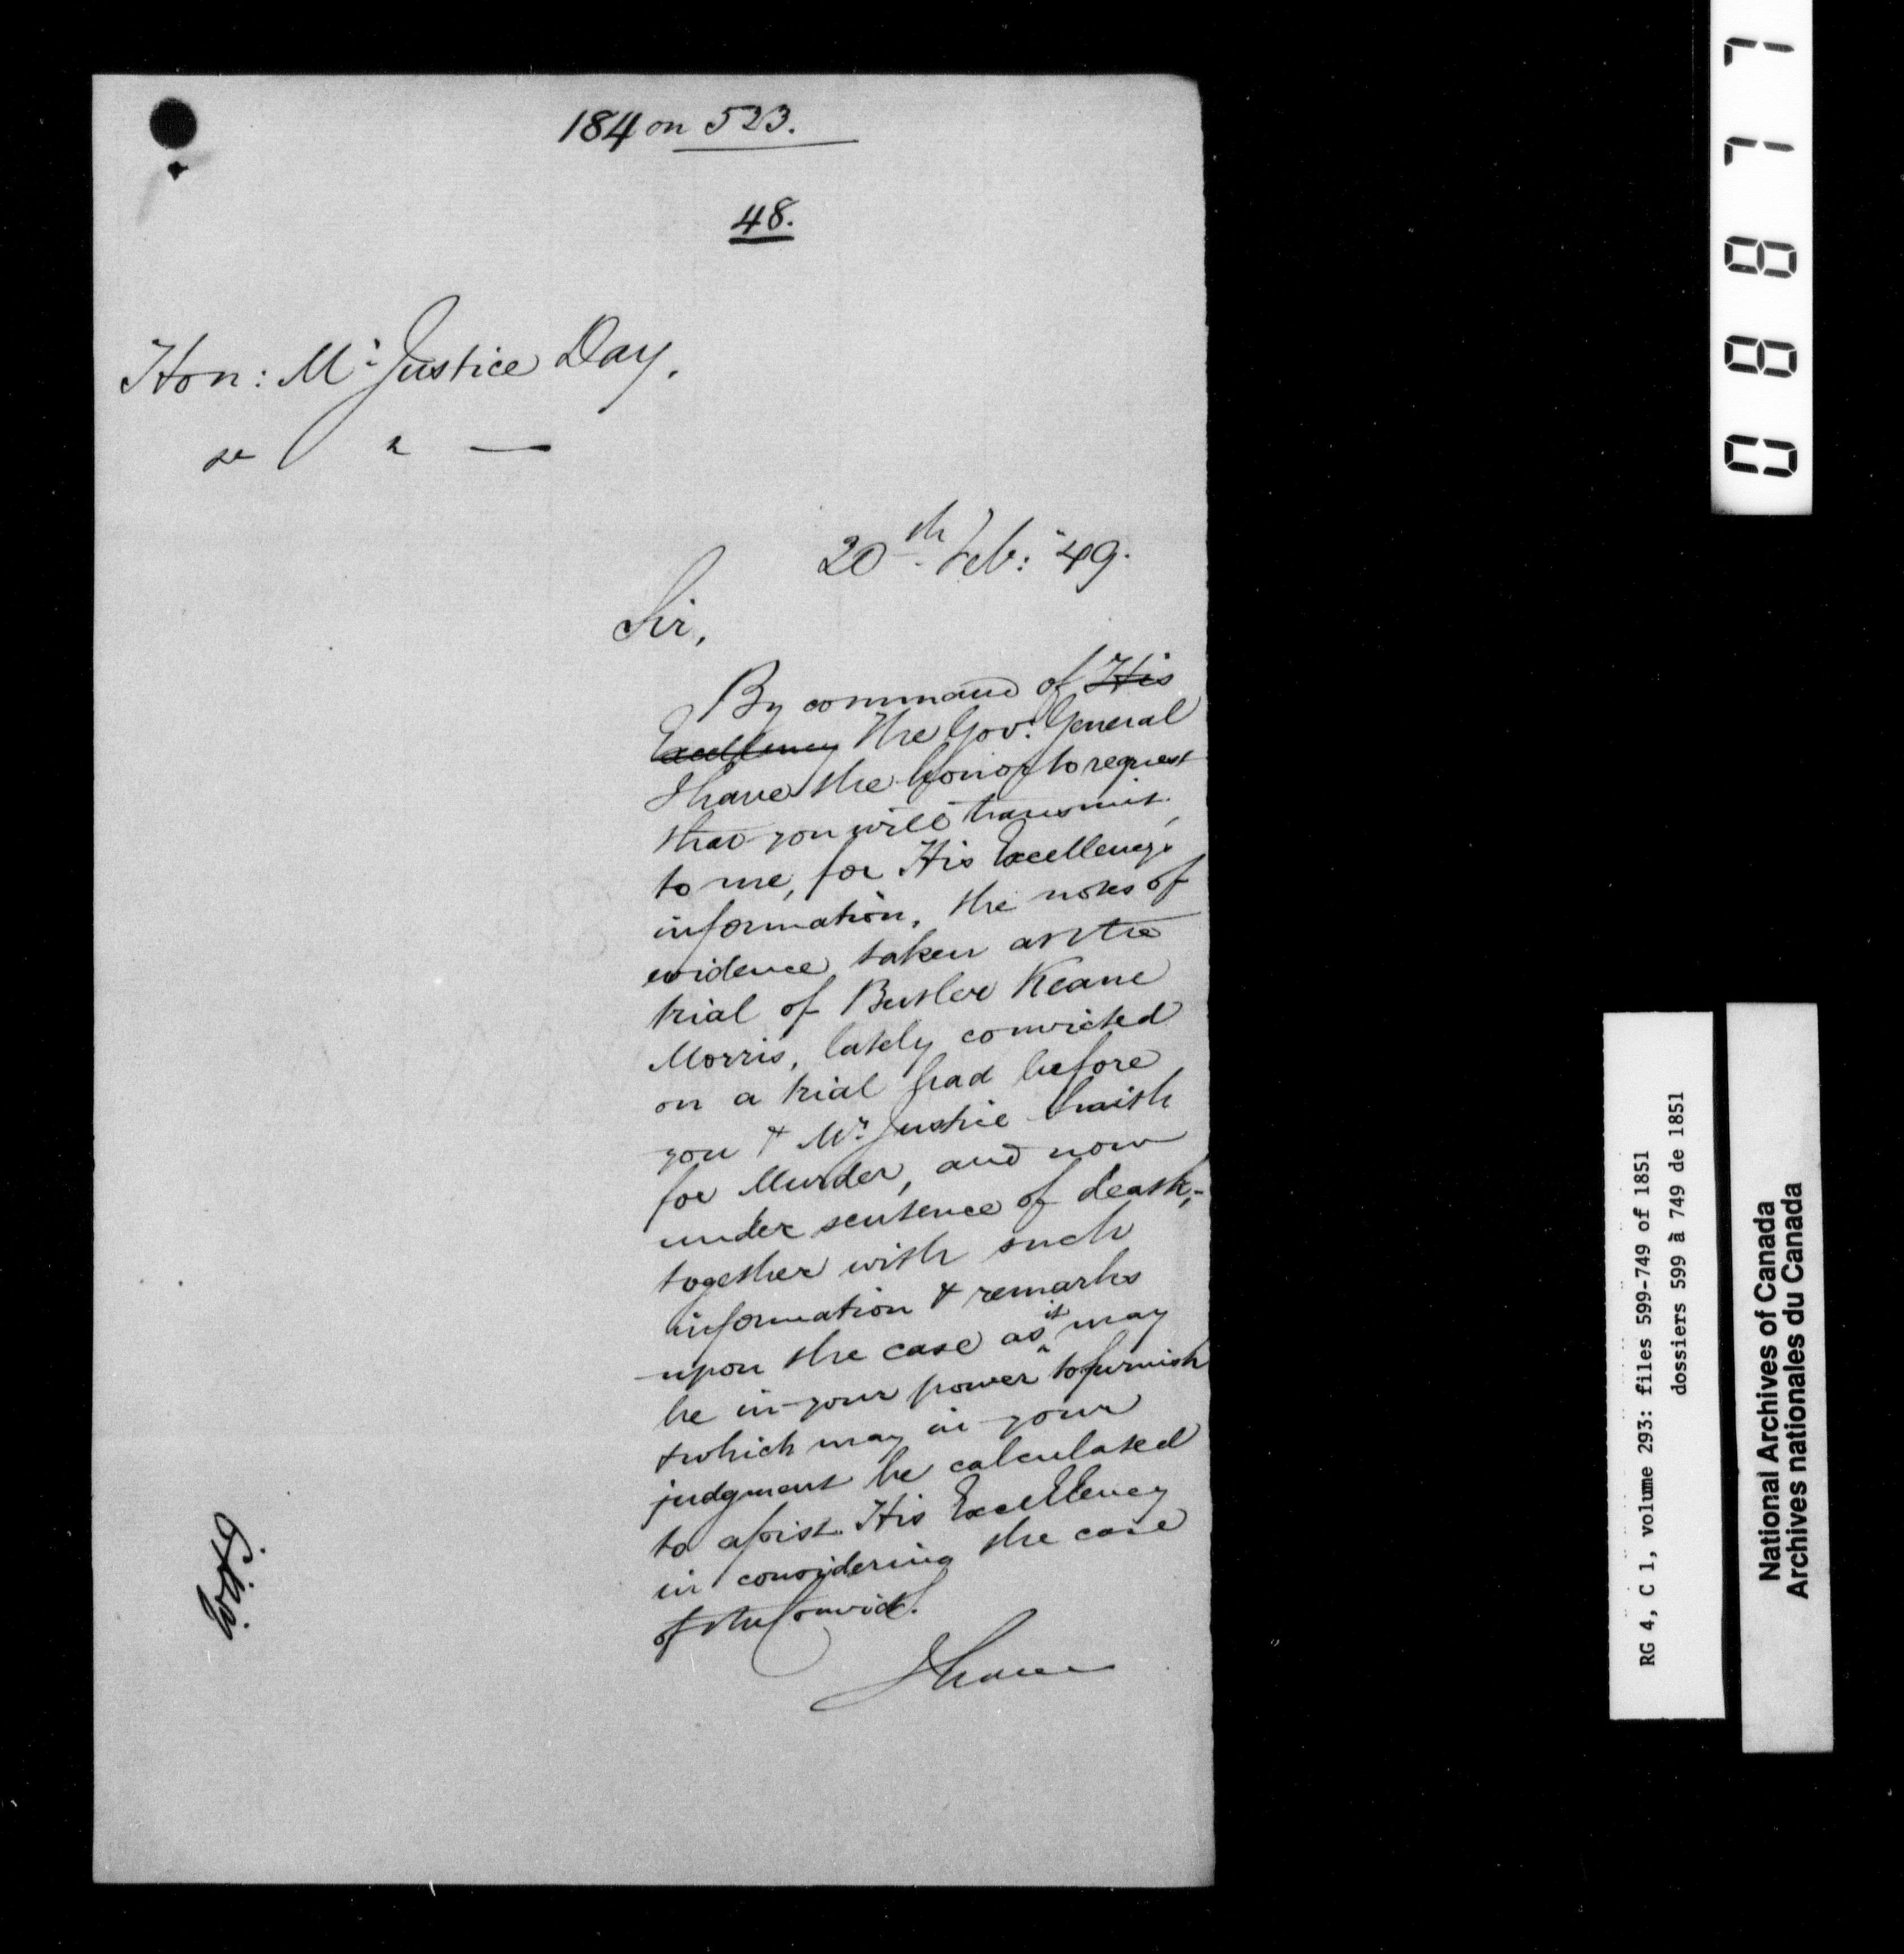 184 on 523.
48.
Hon: Mr Justice Day.
20th Feb: 49.
Sir,
By command of His
Excellency The Gov: General
I have the honor to request
that you will transmit,
to me, for His Excellency's
information, the notes of
evidence taken at the
trial of Butler Keane
Morris, lately convicted
on a trial had before
you & Mr Justice Smith
for Murder, and now
under sentence of death,-
together with such
information & remarks
upon the case as it may
be in your power to furnish
& which may in your
judgment be calculated
to assist His Excellency
in considering the case
of the Convict.
I have
08877
RG 4, C 1, volume 293: files 599-749 of 1851
dossiers 599 à 749 de 1851
National Archives of Canada
Archives nationales du Canada